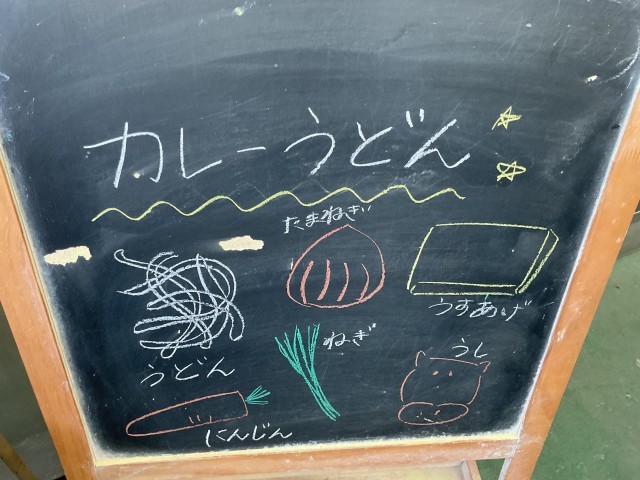 カレーうどん
たまねぎ
うすあげ
ねぎ
うし
うどん
にんじん